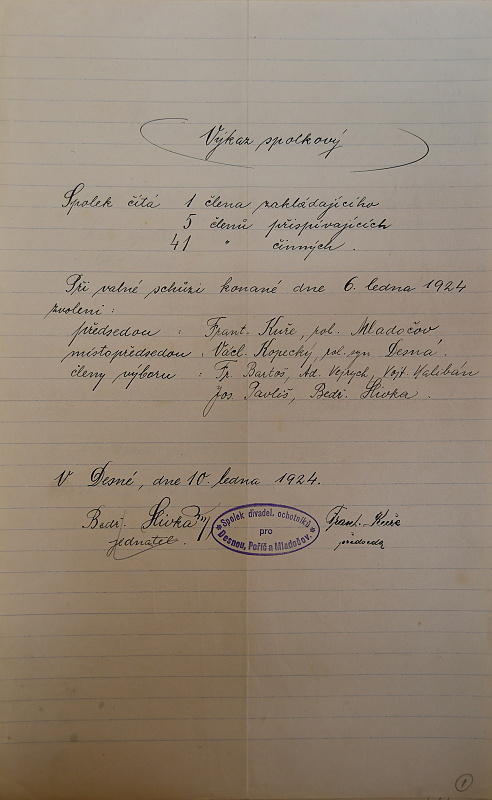 Výkaz spolkový
Spolek čítá 1 člena zakládajícího
5 členů přispívajících
41 " činných.
Při valné schůzi konané dne 6. ledna 1924
zvoleni:
předsedou : Frant. Kuře, rol. Mladočov
místopředsedou : Václ. Kopecký, rol. syn Desná.
členy výboru : Fr. Bartoš, Ad. Vejrych, Vojt. Haliban
Jos. Pavliš, Bedř. Slivka.
V Desné, dne 10. ledna 1924.
Bedř. Slivka
jednatel.
Spolek divadel. ochotníků
pro
Desnou, Poříč a Mladočov.
Frant. Kuře
předseda
1